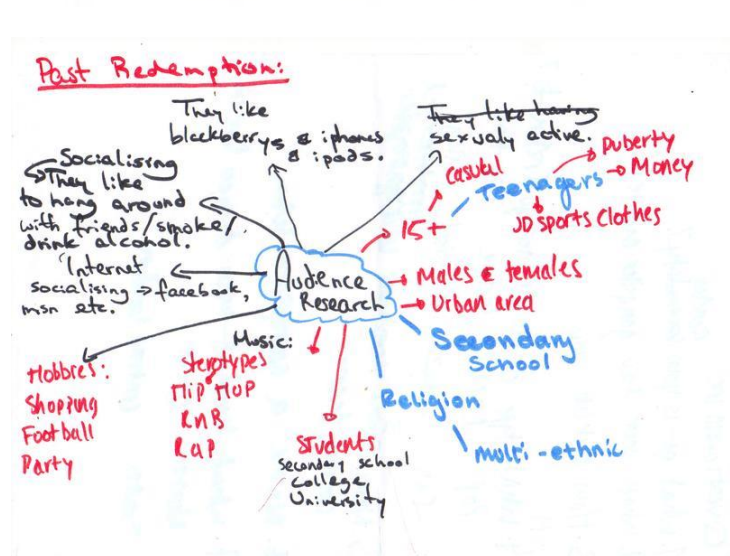 Past Redemption:
They like
blackberrys & iphones
& ipods.
They like having
sexualy active.
Socialising
They like
to hang around
with friends/smoke/
drink alcohol.
Internet
socialising → facebook,
msn etc.
Audience
Research
15+
Casual
Teenagers
Puberty
Money
JD sports Clothes
Males & females
Urban area
Secondary
School
Religion
multi-ethnic
Students
secondary school
College,
University
Music:
Sterotypes
Hip Hop
RnB
Rap
Hobbies:
Shopping
Football
Party